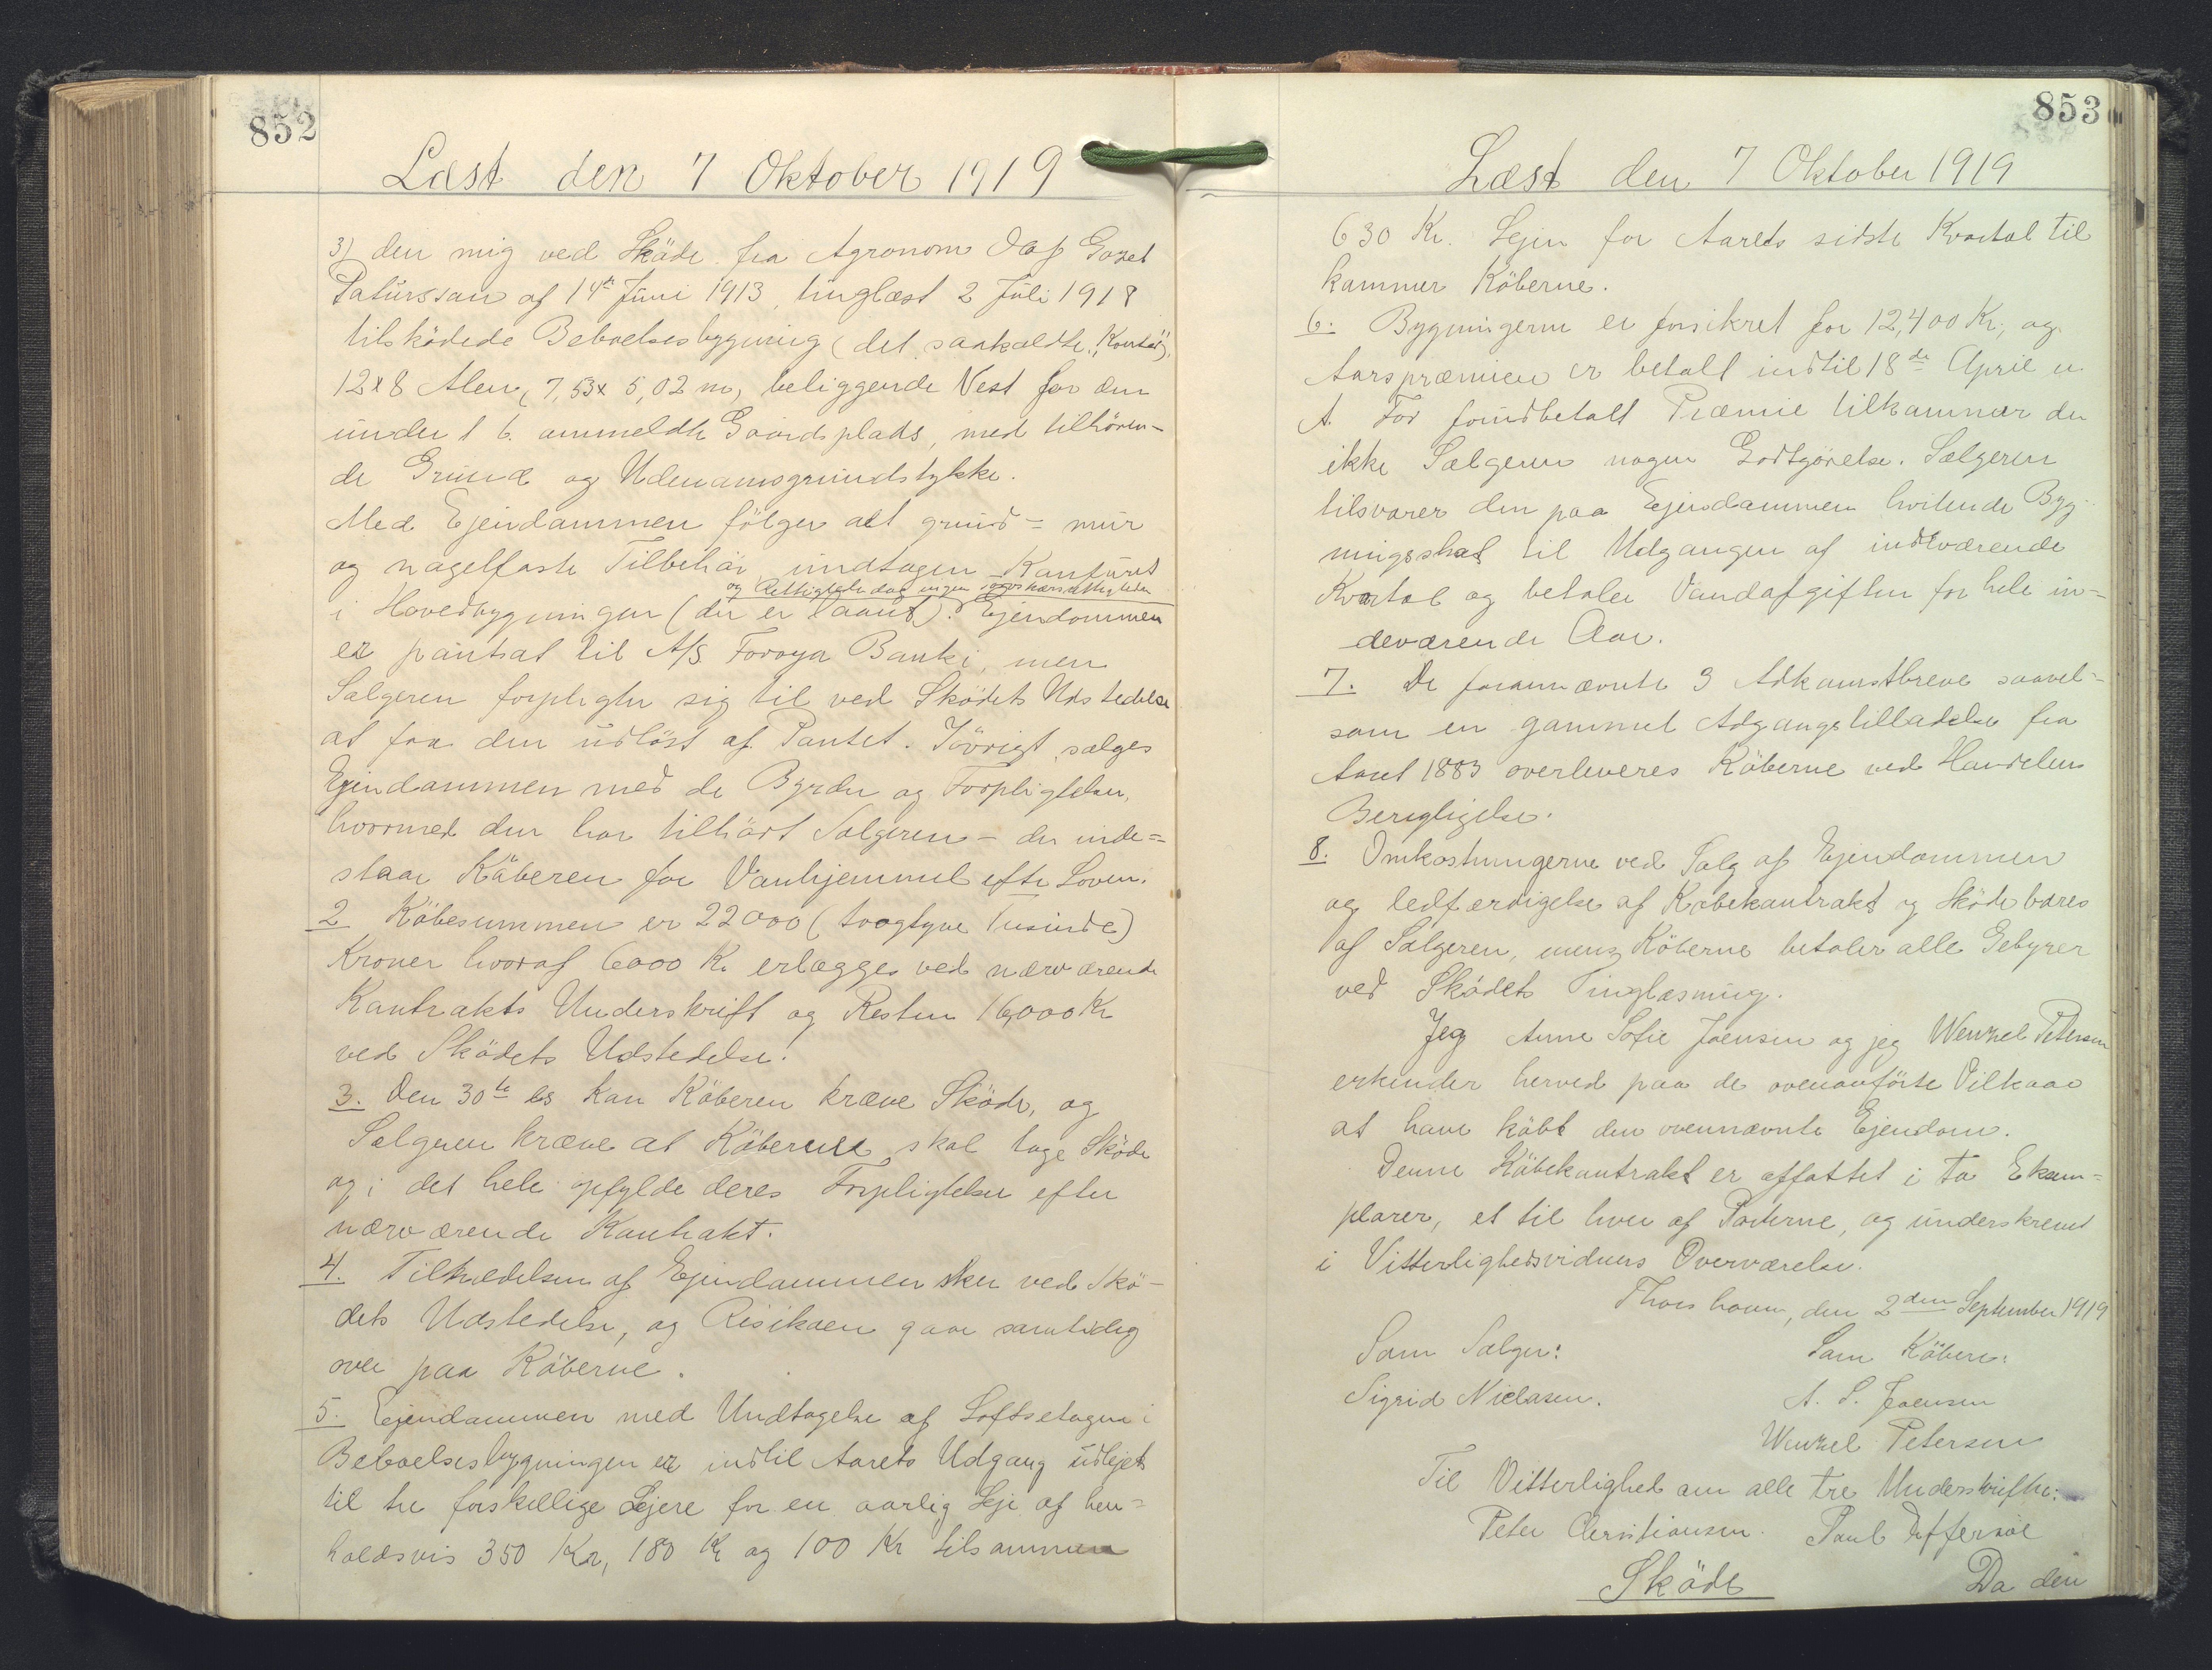 852
Læst den 7 Oktober 1919
3) den mig ved Sköde fra Agronom Olaf Gazet
Patursson af 14de Juni 1913, tinglæst 2 Juli 1918
tilsködede Beboelsesbygning (det saakaldte "Kontor"),
12x8 Alen, 7,53x 5,02 m, beliggende Vest for den
under 1 b. ommeldte Gaardsplads, med tilhören-
de Grund og Udenomsgrundstykke.
Med Ejendommen fölger alt grund= mur
og nagelfaste Tilbehör undtagen Komfuret
og Rettigheder dog ingen
i Hovedbygningen (der er laant). Ejendommen
er pantsat til A/S Föroya Banki, men
Sælgeren forpligter sig til ved Sködets Udstedelse
at faa den udlöst af Pantet. Iövrigt sælges
Ejendommen med de Byrder og Forpligtelser,
hvormed den har tilhört Sælgeren – der inde=
staar Köberen for Vanhjemmel efter Loven.
2 Köbesummen er 22000 (toogtyve Tusinde)
Kroner hvoraf 6000 Kr. erlægges ved nærværende
Kontrakts Underskrift og Resten 16,000 Kr
ved Sködets Udstedelse.
3. Den 30te ds kan Köberen kræve Sköde, og
Sælgeren kræve at Köberne skal tage Sköde
og i det hele opfylde deres Forpligtelser efter
nærværende Kontrakt.
4. Tiltrædelsen af Ejendommen sker ved Skö-
dets Udstedelse, og Risikoen gaar samtidig
over paa Köberne.
5. Ejendommen med Undtagelse af Loftsetagen i
Beboelsesbygningen er indtil Aarets Udgang udlejet
til tre forskellige Lejere for en aarlig Leje af hen=
holdsvis 350 Kr, 180 Kr og 100 Kr tilsammen
853
Læst den 7 Oktober 1919
630 Kr. Lejen for Aarets sidste Kvartal til
kommer Köberne.
6. Bygningerne er forsikret for 12,400 Kr, og
Aarspræmien er betalt indtil 18de April n.
A. For forudbetalt Præmie tilkommer der
ikke Sælgeren nogen Godtgörelse. Sælgeren
tilsvarer den paa Ejendommen hvilende Byg-
ningsskat til Udgangen af indeværende
Kvartal og betaler Vandafgiften for hele in=
deværende Aar.
7. De forannævnte 3 Adkomstbreve saavel=
som en gammel Adgangstilladelse fra
Aaret 1883 overleveres Köberne ved Handelens
Berigtigelse.
8. Omkostningerne ved Salg af Ejendommen
og Udfærdigelse af Köbekontrakt og Sköde bæres
af Sælgeren, mens Köberne betaler alle Gebyrer
ved Sködets Tinglæsning.
Jeg Anne Sofie Joensen og jeg Wenzel Petersen
erkender herved paa de ovenanförte Vilkaar
at have köbt den ovennævnte Ejendom.
Denne Köbekontrakt er affattet i to Eksem=
plarer, et til hver af Parterne, og underskrevet
i Vitterlighedsvidners Overværelse.
Thorshavn, den 2den September 1919
Som Sælger: Som Köbere:
Sigrid Niclasen. A. S. Joensen
Wenzel Petersen
Til Vitterlighed om alle tre Underskrifter:
Peter Christiansen. Paul Effersöe
Sköde Da den